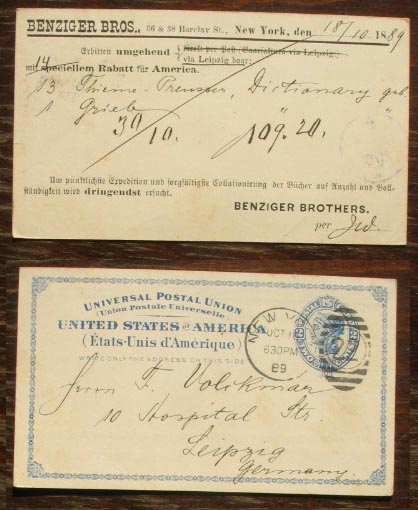 BENZIGER BROS., 36 & 38 Barclay St., New York, den 18/10. 1889
Erbitten umgehend direkt per Post (Connaitura via Leipzig)
via Leipzig baar:
mit speciellem Rabatt für America.
14
13 Thieme-Preusser, Dictionary geb
1 Grieb " "
30/10. 109.20.
Um pünktlichste Expedition und sorgfältigste Collationirung der Bücher auf Anzahl und Voll-
ständigkeit wird dringendst ersucht.
BENZIGER BROTHERS.
per
UNIVERSAL POSTAL UNION
(Union Postale Universelle)
UNITED STATES OF AMERICA
(États-Unis d'Amérique)
WRITE ONLY THE ADDRESS ON THIS SIDE
NEW Y
OCT
630PM
89
Herrn F. Volckmar
10 Hospital Str.
Leipzig
Germany.